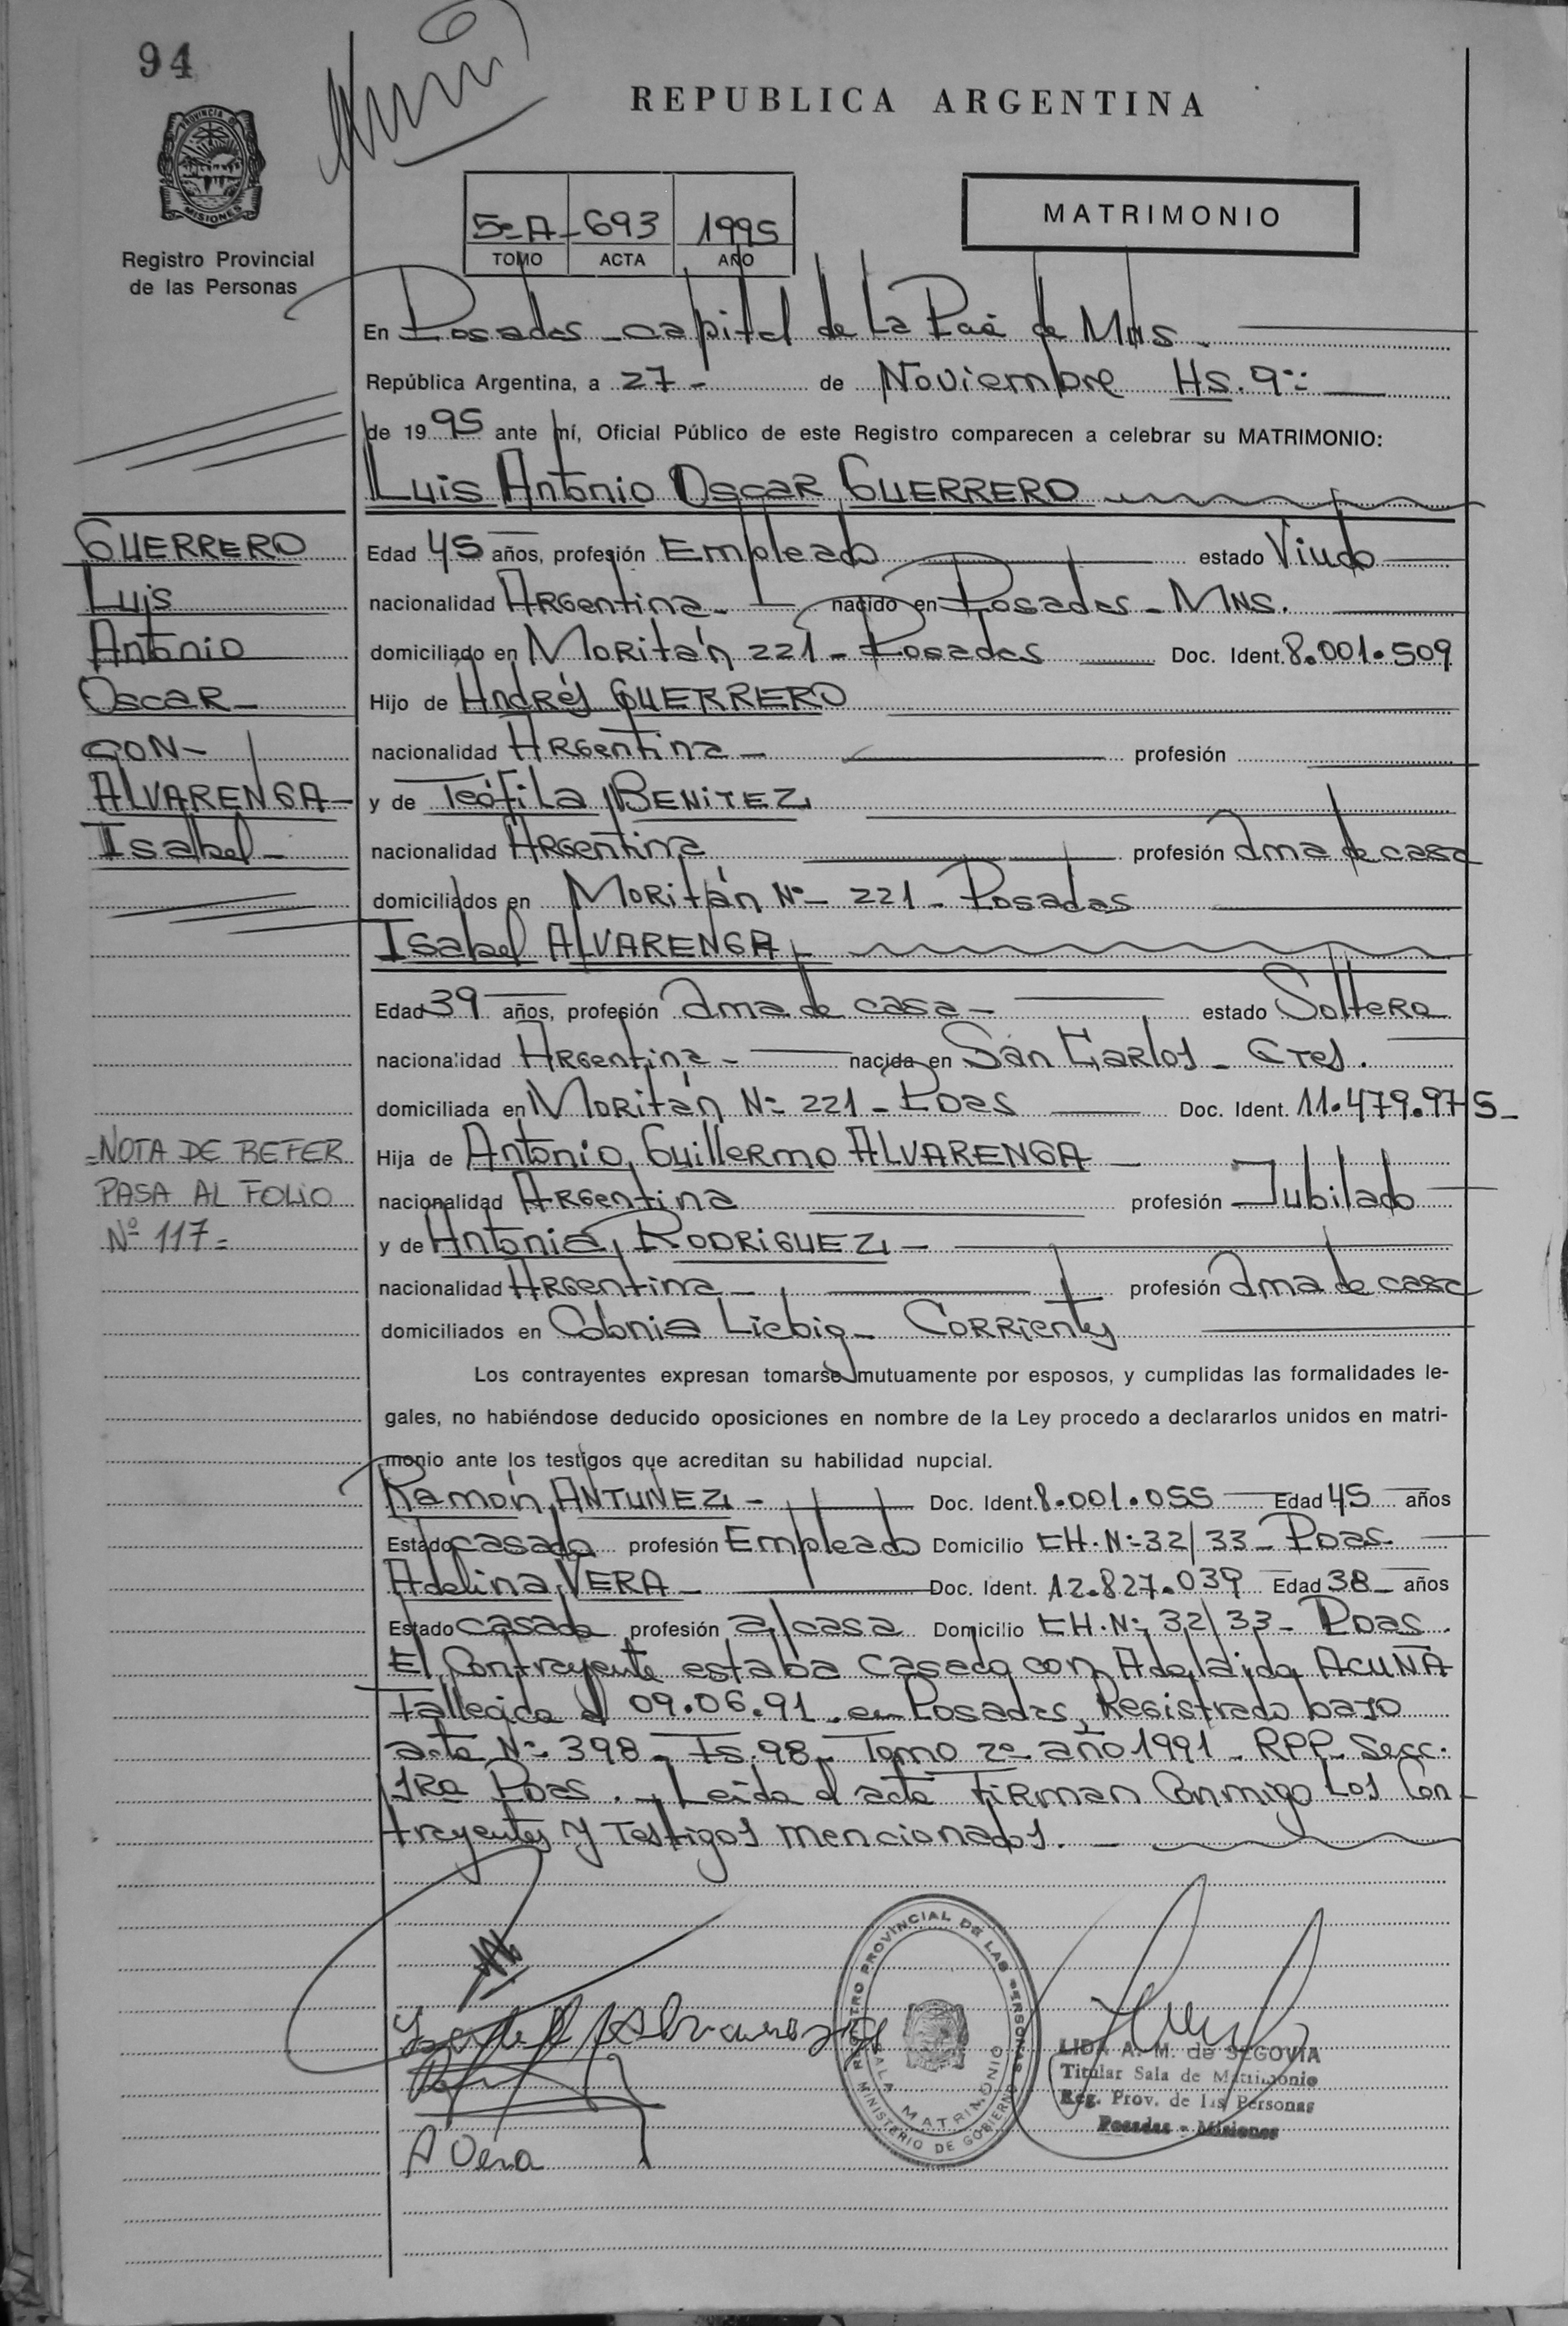 94
REPUBLICA ARGENTINA
PROVINCIA DE MISIONES
Registro Provincial
de las Personas
5º A - 693 1995
TOMO ACTA AÑO
MATRIMONIO
En Posadas - capital de la Pcia de Mnes.
República Argentina, a 27 - de Noviembre Hs. 9:
de 1995 ante mí, Oficial Público de este Registro comparecen a celebrar su MATRIMONIO:
Luis Antonio Oscar GUERRERO
GUERRERO
Luis
Antonio
Oscar -
CON -
ALVARENGA -
Isabel -
Edad 45 años, profesión Empleado estado Viudo
nacionalidad Argentina - nacido en Posadas - Mns.
domiciliado en Moritán 221 - Posadas Doc. Ident. 8.001.509
Hijo de Andrés GUERRERO
nacionalidad Argentina - profesión
y de Teófila BENITEZ
nacionalidad Argentina profesión ama de casa
domiciliados en Moritán Nº 221 - Posadas
Isabel ALVARENGA
Edad 39 años, profesión ama de casa - estado Soltera
nacionalidad Argentina - nacida en San Carlos - Ctes.
domiciliada en Moritán Nº 221 - Pdas Doc. Ident. 11.479.975 -
NOTA DE REFER
PASA AL FOLIO
Nº 117 =
Hija de Antonio Guillermo ALVARENGA -
nacionalidad Argentina profesión Jubilado
y de Antonia RODRIGUEZ -
nacionalidad Argentina - profesión ama de casa
domiciliados en Colonia Liebig - Corrientes
Los contrayentes expresan tomarse mutuamente por esposos, y cumplidas las formalidades le-
gales, no habiéndose deducido oposiciones en nombre de la Ley procedo a declararlos unidos en matri-
monio ante los testigos que acreditan su habilidad nupcial.
Ramón ANTUNEZ - Doc. Ident. 8.001.055 Edad 45 años
Estado casado profesión Empleado Domicilio CH. Nº 32/33 - Pdas.
Adelina VERA - Doc. Ident. 12.827.039 Edad 38 - años
Estado casada profesión a/casa Domicilio CH. Nº 32/33 - Pdas.
El Contrayente estaba casado con Adelaida ACUÑA
Fallecida el 09.06.91. en Posadas, Registrado bajo
acta Nº 398 - Fs. 98 - Tomo 2º año 1991 - RPP. Secc.
1Ra Pdas. - Leída el acta Firman Conmigo Los Con
trayentes y Testigos mencionados. -
A Vera
REGISTRO PROVINCIAL DE LAS PERSONAS
SALA MATRIMONIO
MINISTERIO DE GOBIERNO
LIDA A. M. de SEGOVIA
Titular Sala de Matrimonio
Reg. Prov. de las Personas
Posadas - Misiones